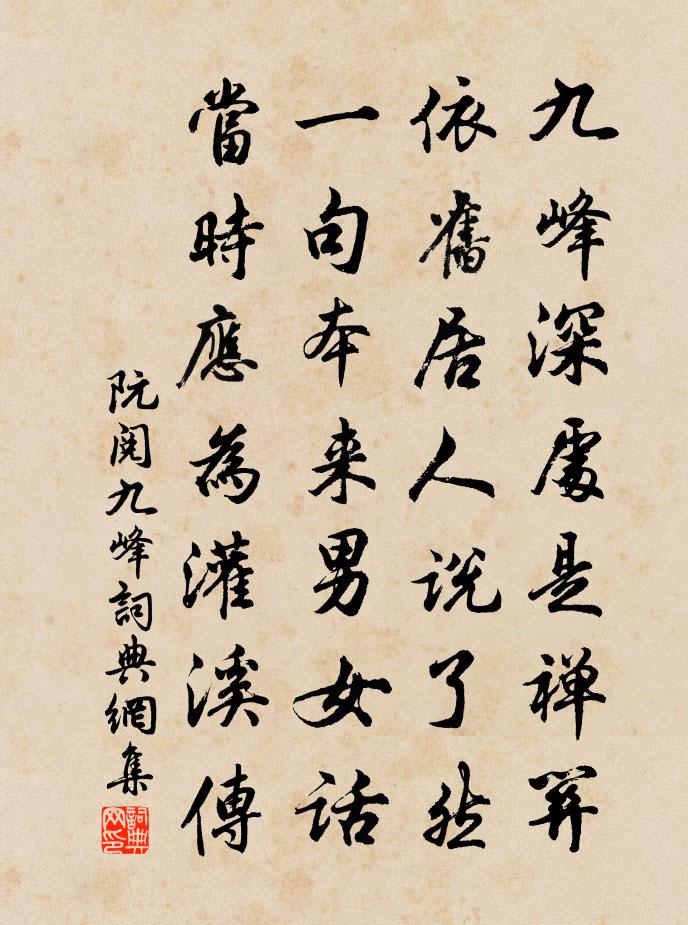 九峰深處是禅關
依舊居人説了然
一句本来男女話
當時應為灌溪傳
阮閱九峰詞典網集
詞典网印